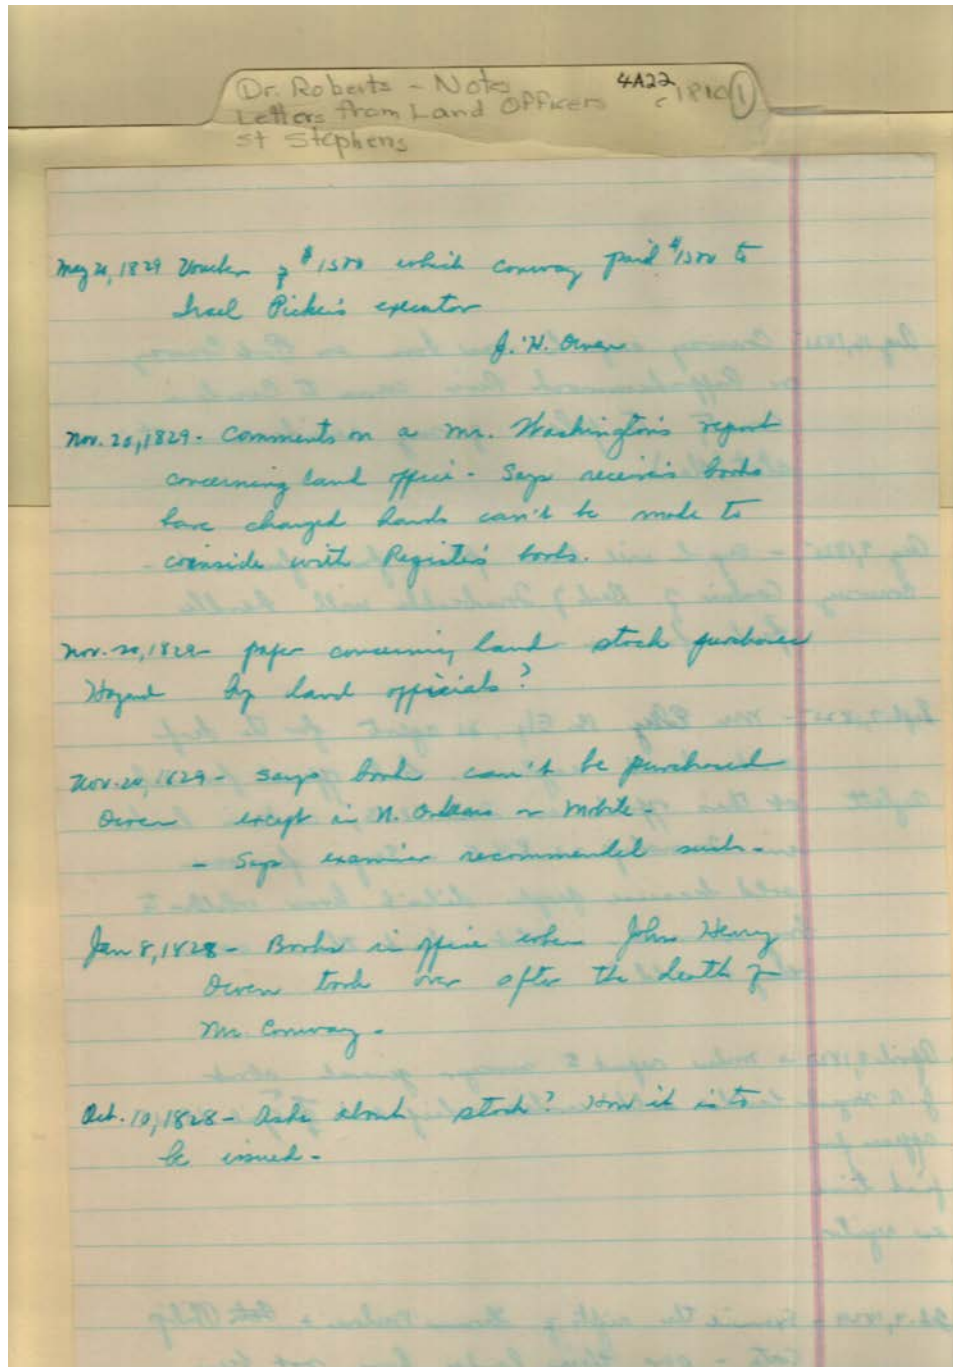 Dr. Roberts - Notes 4A22 c 1810 1
Letters from Land Officers
St Stephens
May 21, 1829 Voucher of $1500 which conway paid $1500 to
Israel Picken's executor
J. H. Owen
Nov. 20, 1829 - Comments on a Mr. Washington's report
concerning land office - Says receiver's books
have changed hands can't be made to
coinside with Register's books.
Nov. 20, 1829 - paper concerning land stock purchases
by land officials?
Nov. 20, 1829 - Says books can't be purchased
Owen except in N. Orleans or Mobile -
- Says examiner recommended suits -
Jan 8, 1828 - Books in office when John Henry
Owen took over after the death of
Mr. Conway -
Oct. 10, 1828 - Asks about stock? How it is to
be issued -